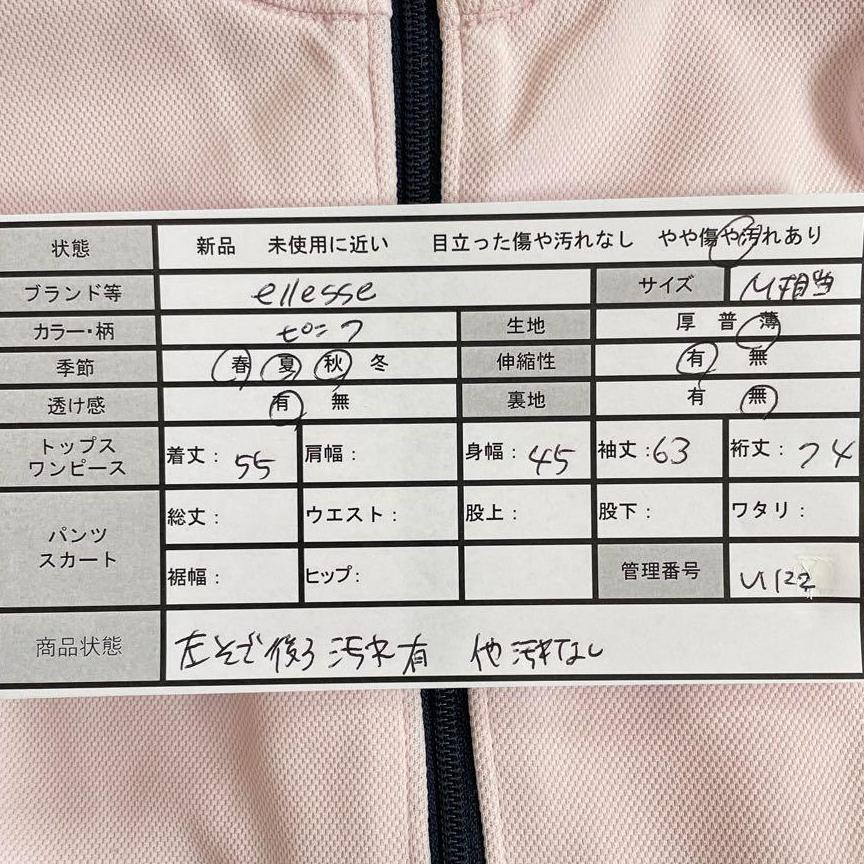 状態 新品 未使用に近い 目立った傷や汚れなし やや傷や汚れあり
ブランド等 ellesse サイズ M相当
カラー・柄 ピンク 生地 厚 普 薄
季節 春 夏 秋 冬 伸縮性 有 無
透け感 有 無 裏地 有 無
トップス
ワンピース
着丈： 55 肩幅： 身幅： 45 袖丈：63 裄丈： 74
パンツ
スカート
総丈： ウエスト： 股上： 股下： ワタリ：
裾幅： ヒップ： 管理番号 U122
商品状態 左そで後ろ汚れ有 他汚れなし